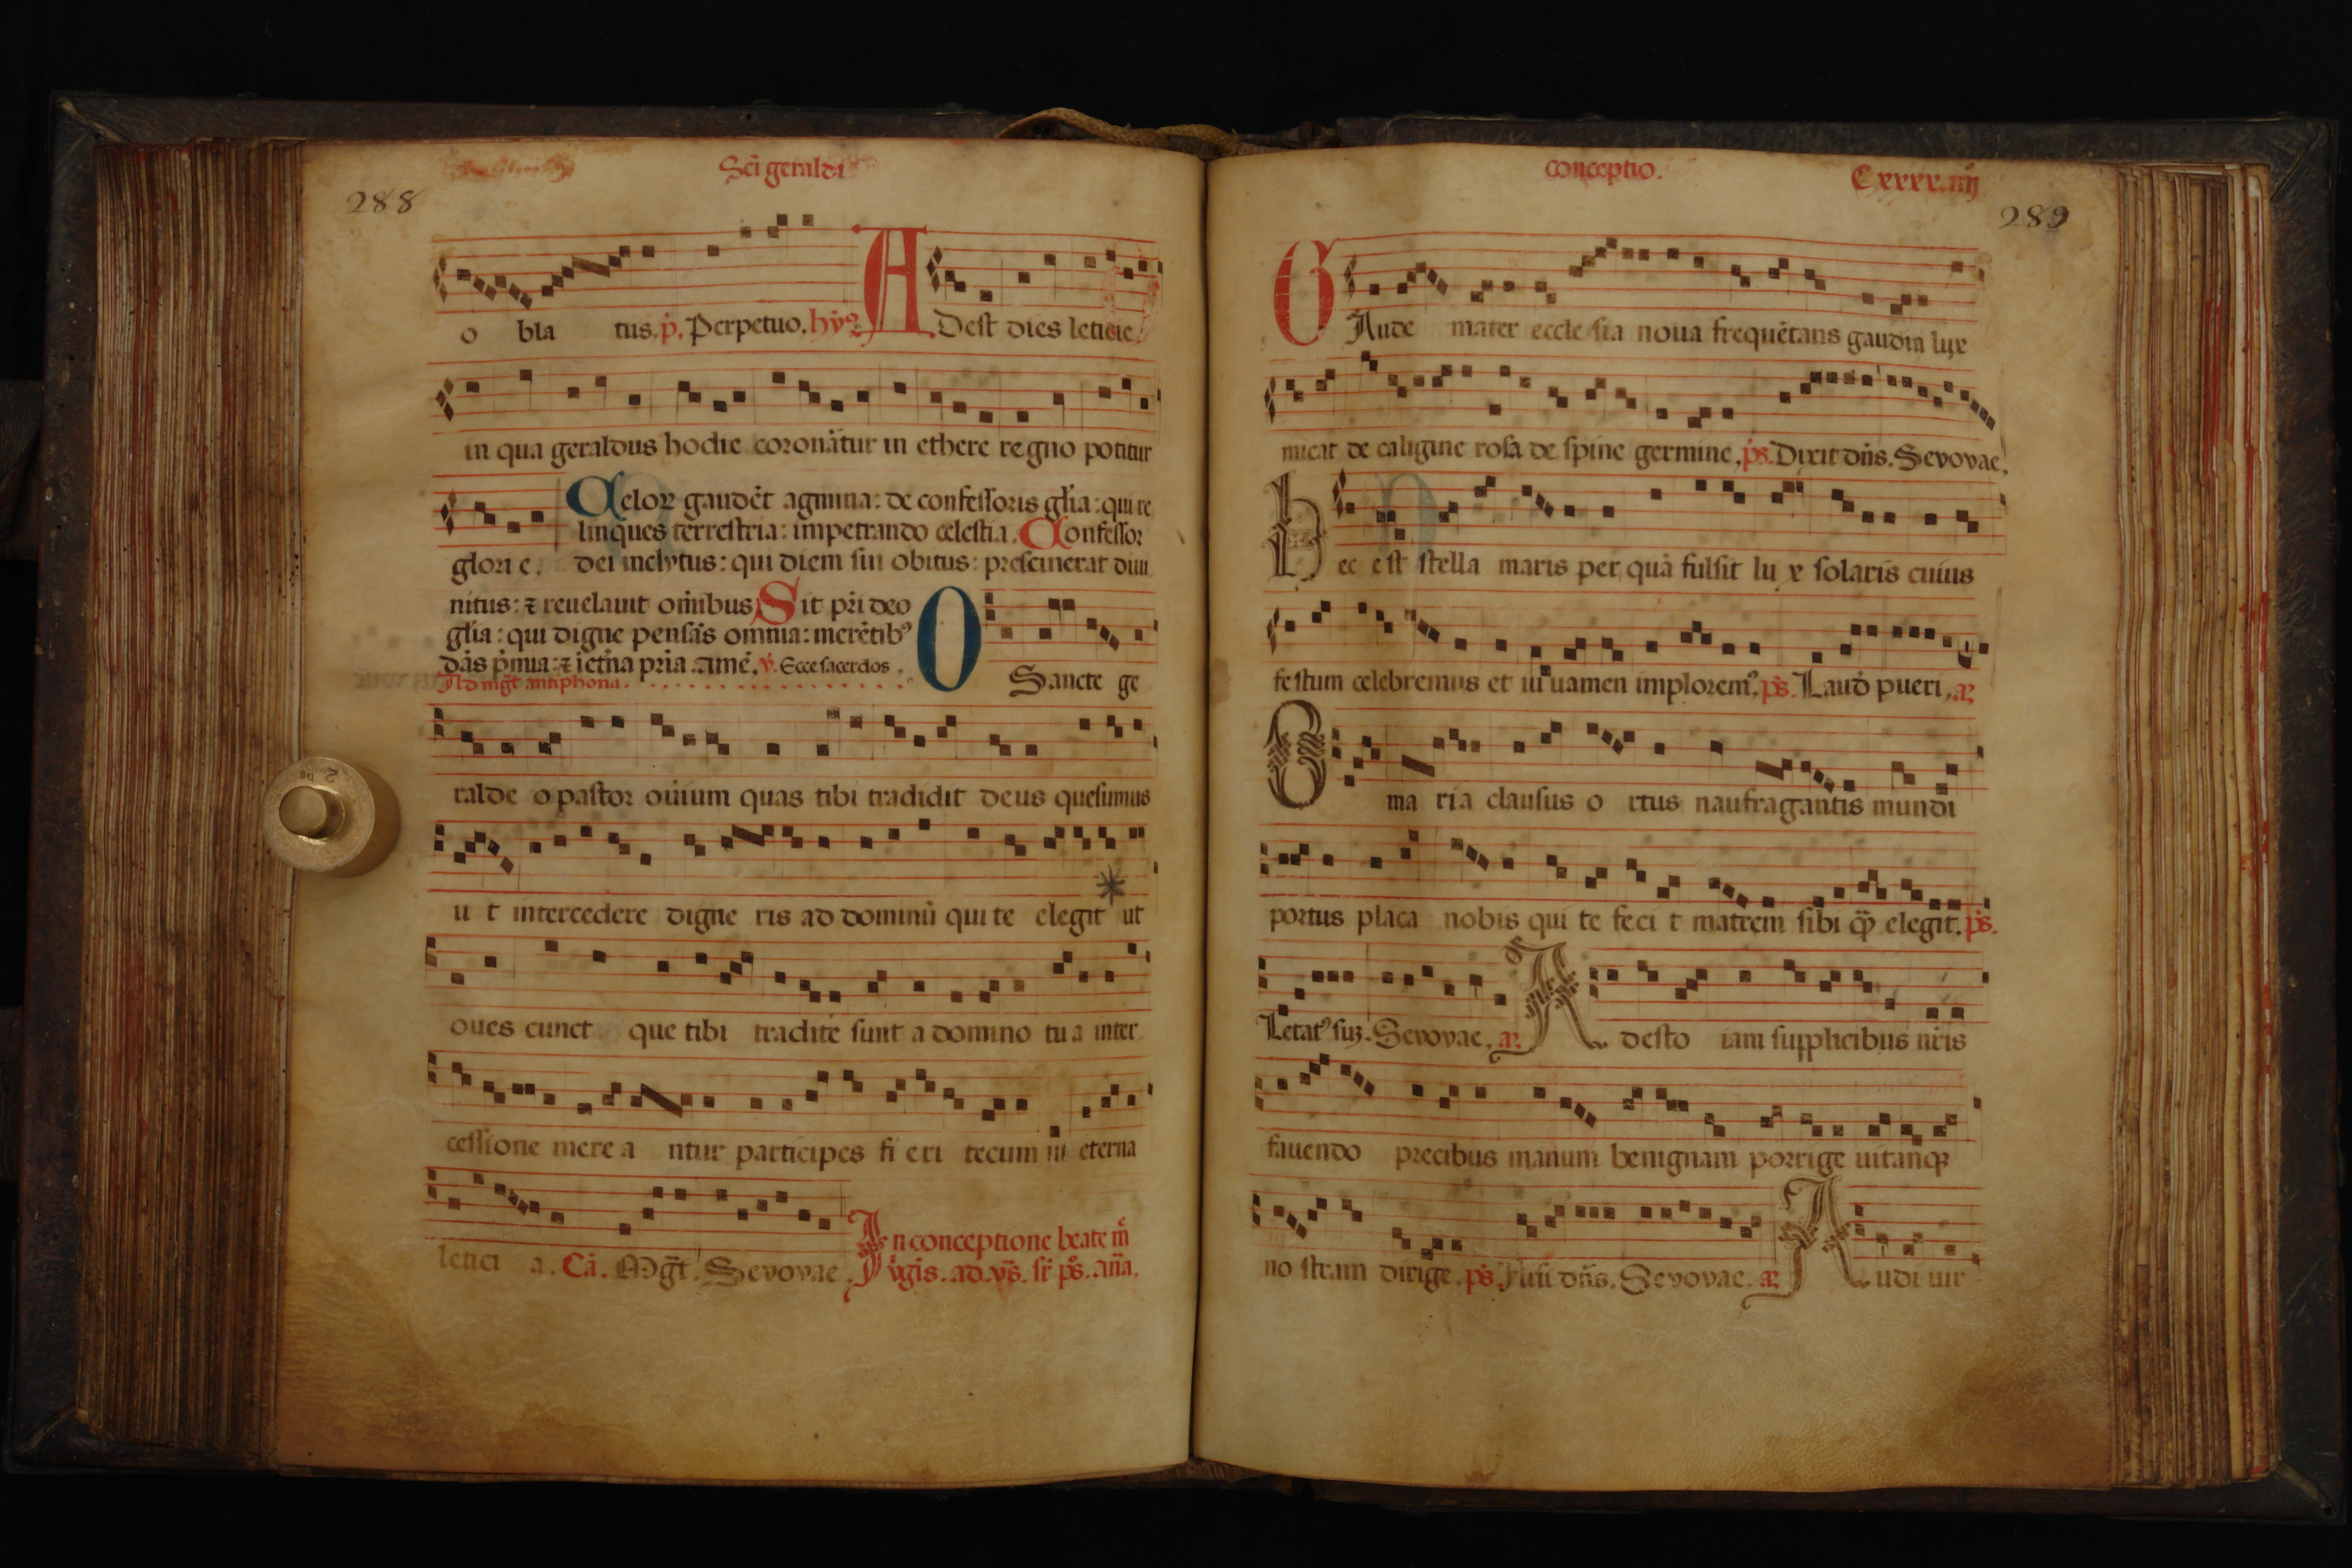 Sc̄i geraldi
288
o bla tus. p̄. Perpetuo. hyꝰ. ADest dies leticie
in qua geraldus hodie coronātur in ethere regno potitur
Celoꝝ gaudēt agmina: de confessoris glīa: qui re
linques terrestria: impetrando celestia. Confessor
glorie. dei inclytus: qui diem sui obitus: presciuerat diui
nitus: ⁊ reuelauit om̄ibus Sit pr̄i deo
glīa: qui digne pensās omnia: merētibꝰ
dās p̄mia: ⁊ īet̄na pr̄ia. amē. ℣. Ecce sacerdos.
Ad mḡt antiphona.
O Sancte ge
ralde o pastor ouium quas tibi tradidit deus quesumus
u t intercedere digne ris ad dominū qui te elegit ut
oues cunct que tibi tradite sunt a domino tua inter
cessione mere a ntur participes fi eri tecum in eterna
letici a. Cā. Mḡt. Sevovae. In conceptione beate m̄
v̄gīs. ad. vs̄. sr̄ ps̄. an̄a.
conceptio.
Cxxxx.iiij
289
GAude mater ecclesia noua frequētans gaudia lux
micat de caligine rosa de spine germine. ps̄. Dixit dn̄s. Sevovae.
Hec est stella maris per quā fulsit lu x solaris cuius
festum celebremus et iuuamen imploremꝰ. ps̄. Laud̄ pueri. añ
O ma ria clausus o rtus naufragantis mundi
portus placa nobis qui te feci t matrem sibi qꝫ elegit. ps̄.
Letatꝰ suꝫ. Sevovae. añ A desto iam supplicibus nr̄is
fauendo precibus manum benignam porrige uitamqꝫ
no stram dirige. ps̄. Nisi dn̄s. Sevovae. añ Audi uir